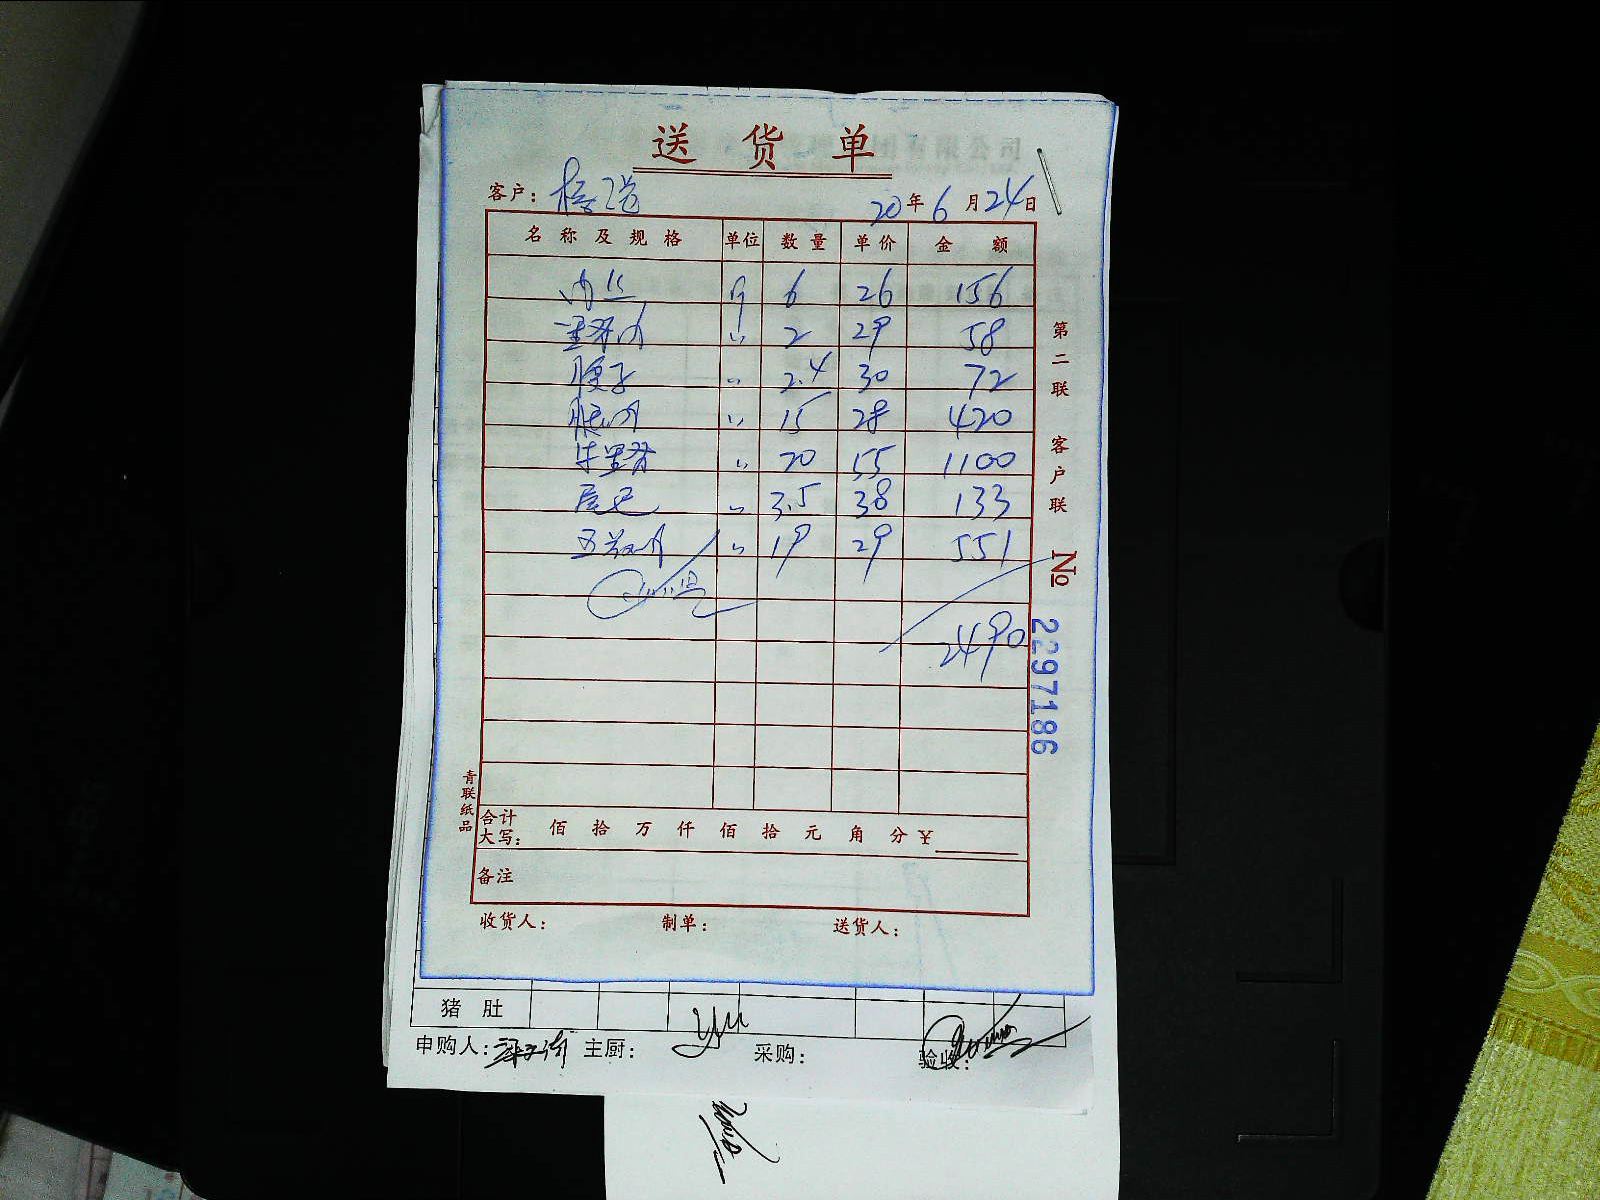 送货单
客户：
20年6月24日
名称及规格 单位 数量 单价 金额
肉丝 斤 6 26 156
里脊肉 〃 2 29 58
腰子 〃 2.4 30 72
腿肉 〃 15 28 420
牛里脊 〃 20 55 1100
尾巴 〃 3.5 38 133
五花肉 〃 19 29 551
2490
第二联 客户联
№ 2297186
青联纸品
合计大写： 佰 拾 万 仟 佰 拾 元 角 分 ¥
备注
收货人： 制单： 送货人：
猪肚
申购人： 主厨： 采购： 验收：